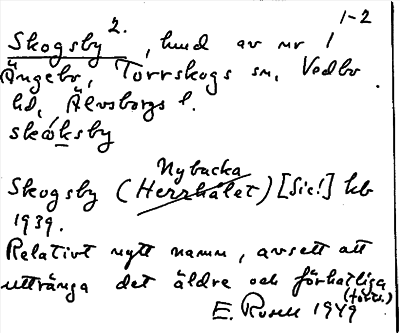 1-2
Skogsby 2. , hmd av nr 1
Ängebo, Torrskogs sn, Vedbo
hd, Älvsborgs l.
skóksby
Nybacka
Skogsby (Herrhålet) [Sic!] kb
1939.
Relativt nytt namn, avsett att
uttränga det äldre och förhatliga
(förv.)
E. Rosell 1949